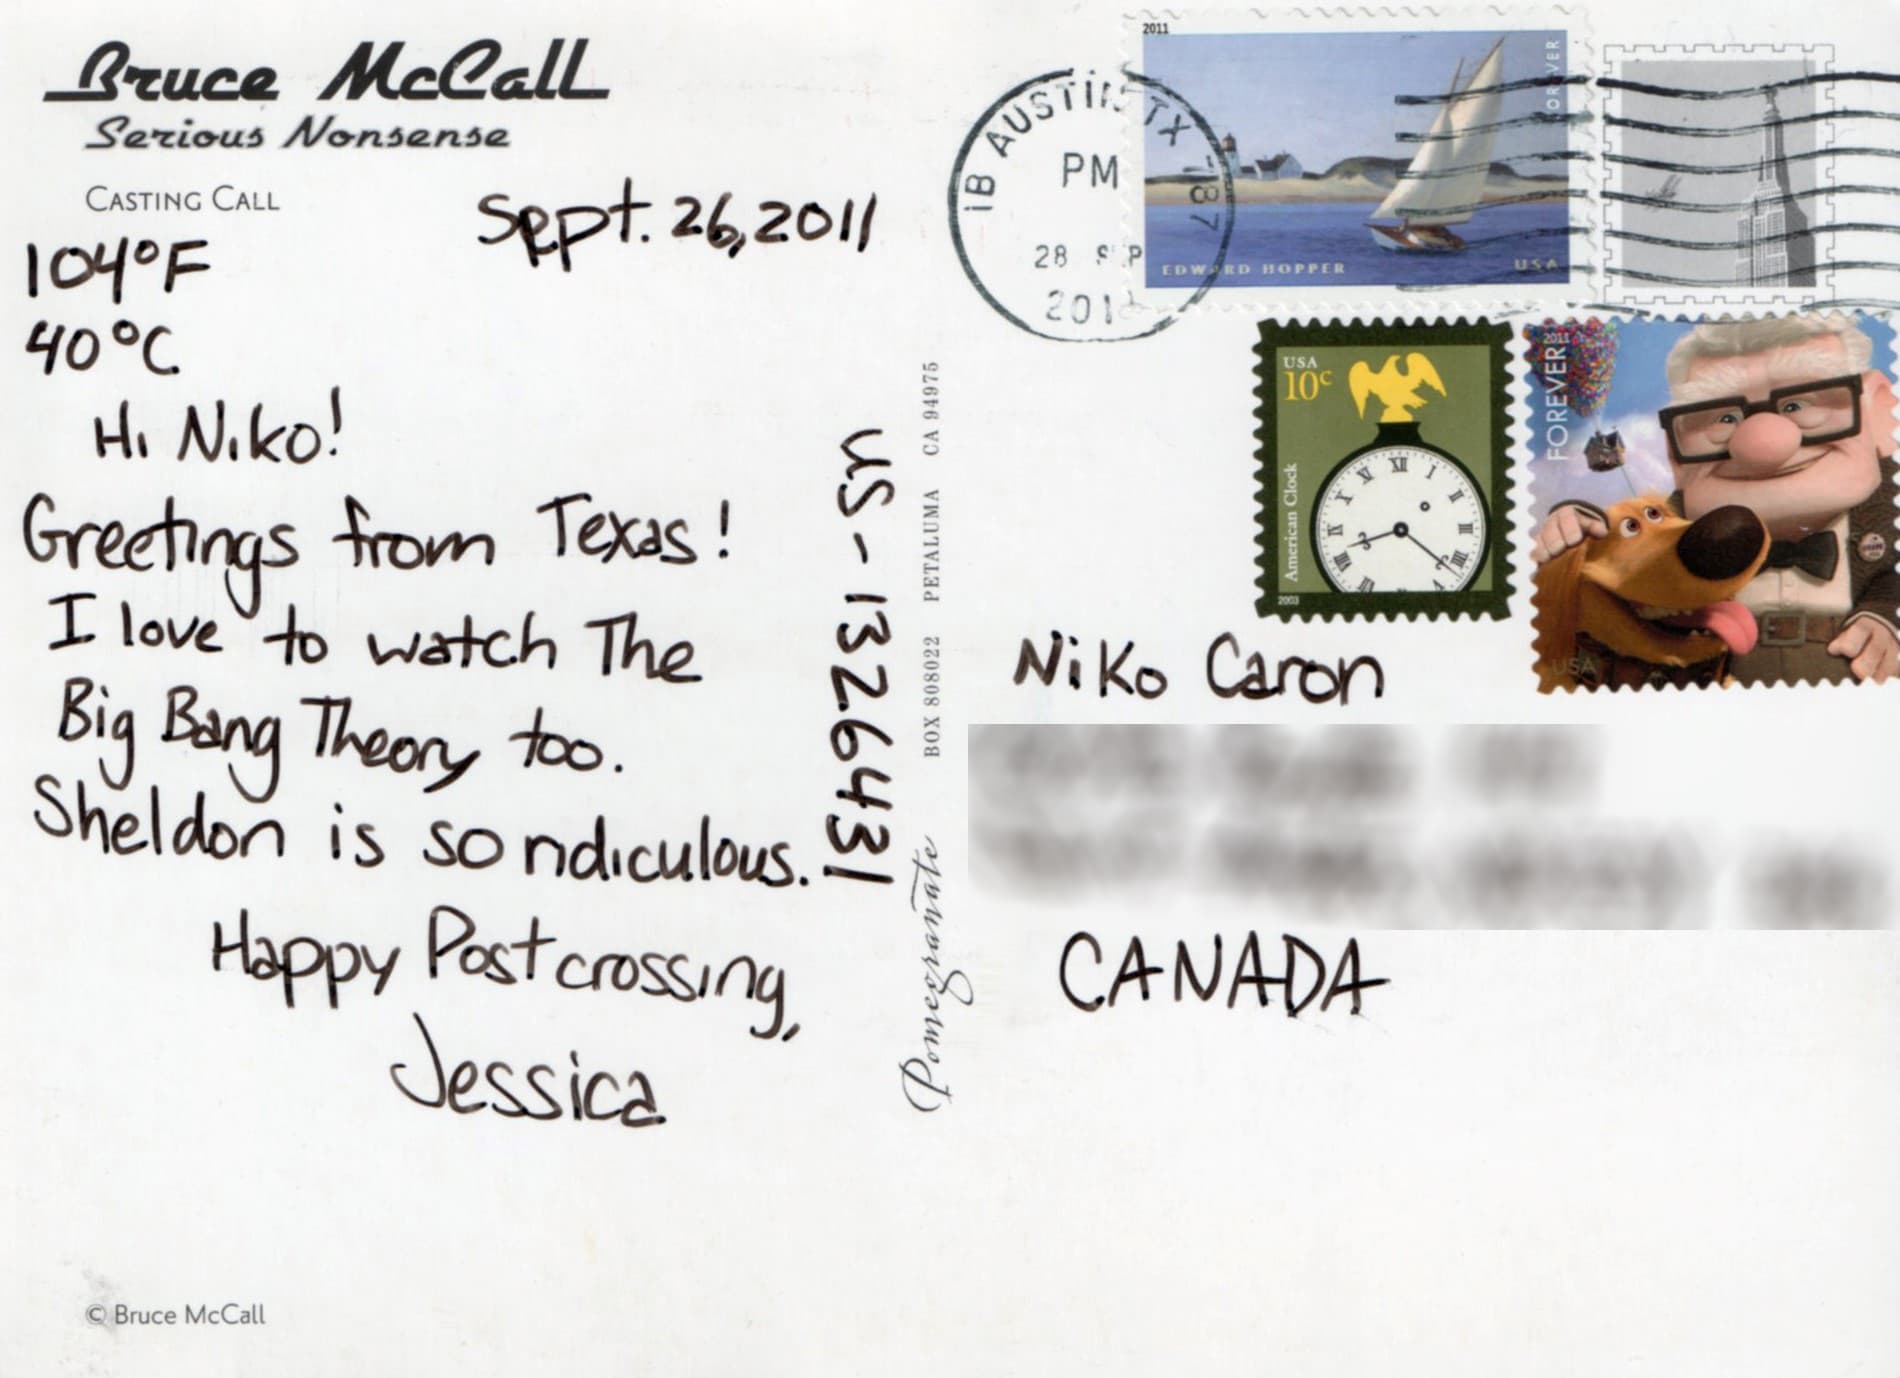 Bruce McCall
Serious Nonsense
CASTING CALL
Sept. 26, 2011
104°F
40°C
Hi Niko!
Greetings from Texas!
I love to watch The
Big Bang Theory too.
Sheldon is so ridiculous.
Happy Postcrossing,
Jessica
© Bruce McCall
US-1326431
Pomegranate BOX 808022 PETALUMA CA 94975
IB AUSTIN TX 787
PM
28 SEP
2011
EDWARD HOPPER
USA
FOREVER
USA
10c
American Clock
2003
XII I II III IIII V VII VIII IX X XI
FOREVER
2011
USA
Niko Caron
CANADA